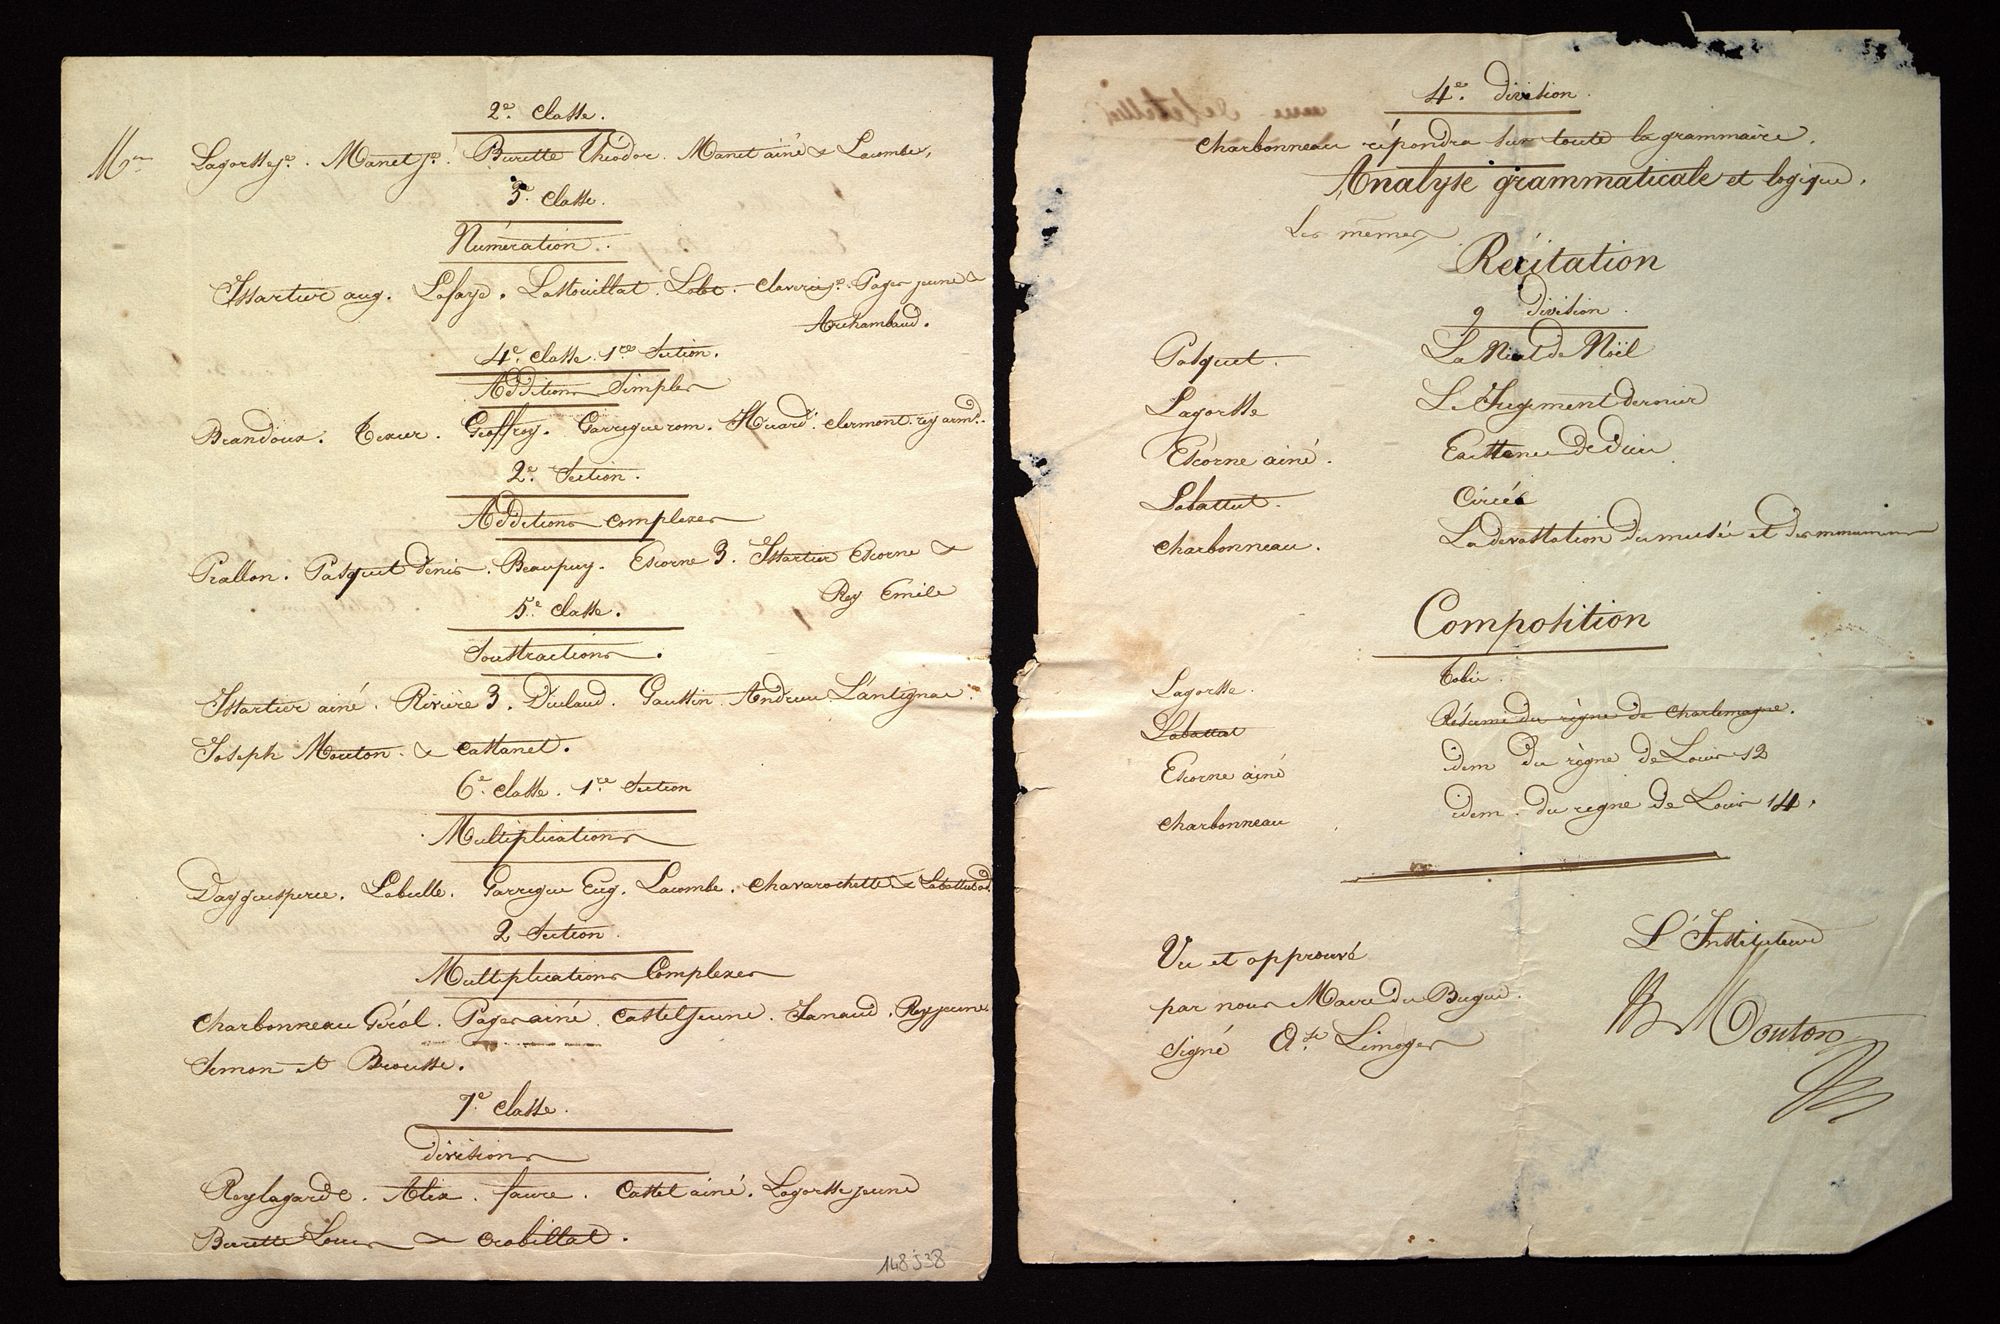 2e. Classe.
Mrs Lagorsse je. Manet je. Burette Théodor. Manet ainé & Lacombe,
3e. Classe.
Numération.
Issartier aug. Lafaye. Lassouillat. Lobe. Claverie je. Pages jeune &
Archambaud.
4e. Classe. 1re Section.
Additions Simples
Brandoux. Texier. Geoffroy. Garrigue rom. Huard. Clermont. rey armd.
2e. Section.
Additions Complexes
Prallon. Pasquet Denis. Beaupuy. Escorne 3. Issartier Escorne &
Rey Emile
5e. Classe.
Soustractions.
Issartier ainé. Rivière 3. Dulaud. Gaussin. Andrieu. Lantignac.
Joseph Mouton. & Castanet.
6e. Classe. 1re. Section
Multiplications
Labulle. Garrigue Eug. Lacombe. Chavarochette &
2 Section.
Multiplications Complexes
Charbonneau Gérol. Pages ainé. Castel jeune. Janaud. Rey jeune
Simon et Brousse.
7e. Classe.
Divisions
Rey lagarde. Alix. faure. Castel ainé. Lagorsse jeune
Burette Louis & Crabillat.
148 J 38
4e. Division.
Charbonneau répondra sur toute la grammaire.
Analyse grammaticale et logique.
Les mêmes
Récitation
9 Division.
Pasquet. La Nuit de Noël
Lagorsse Le Jugement dernier
Escorne ainé. Existence de Dieu
Labattut. Circée
Charbonneau. La dévastation du musée et des monumens
Composition
Lagorsse. Tobie.
Labattut Résumé du règne de Charlemagne.
Escorne ainé idem du règne de Louis 12
Charbonneau idem. du règne de Louis 14.
Vu et approuvé
L'Instituteur
par nous Maire du Bugue.
Mouton
Signé Ate Limoges